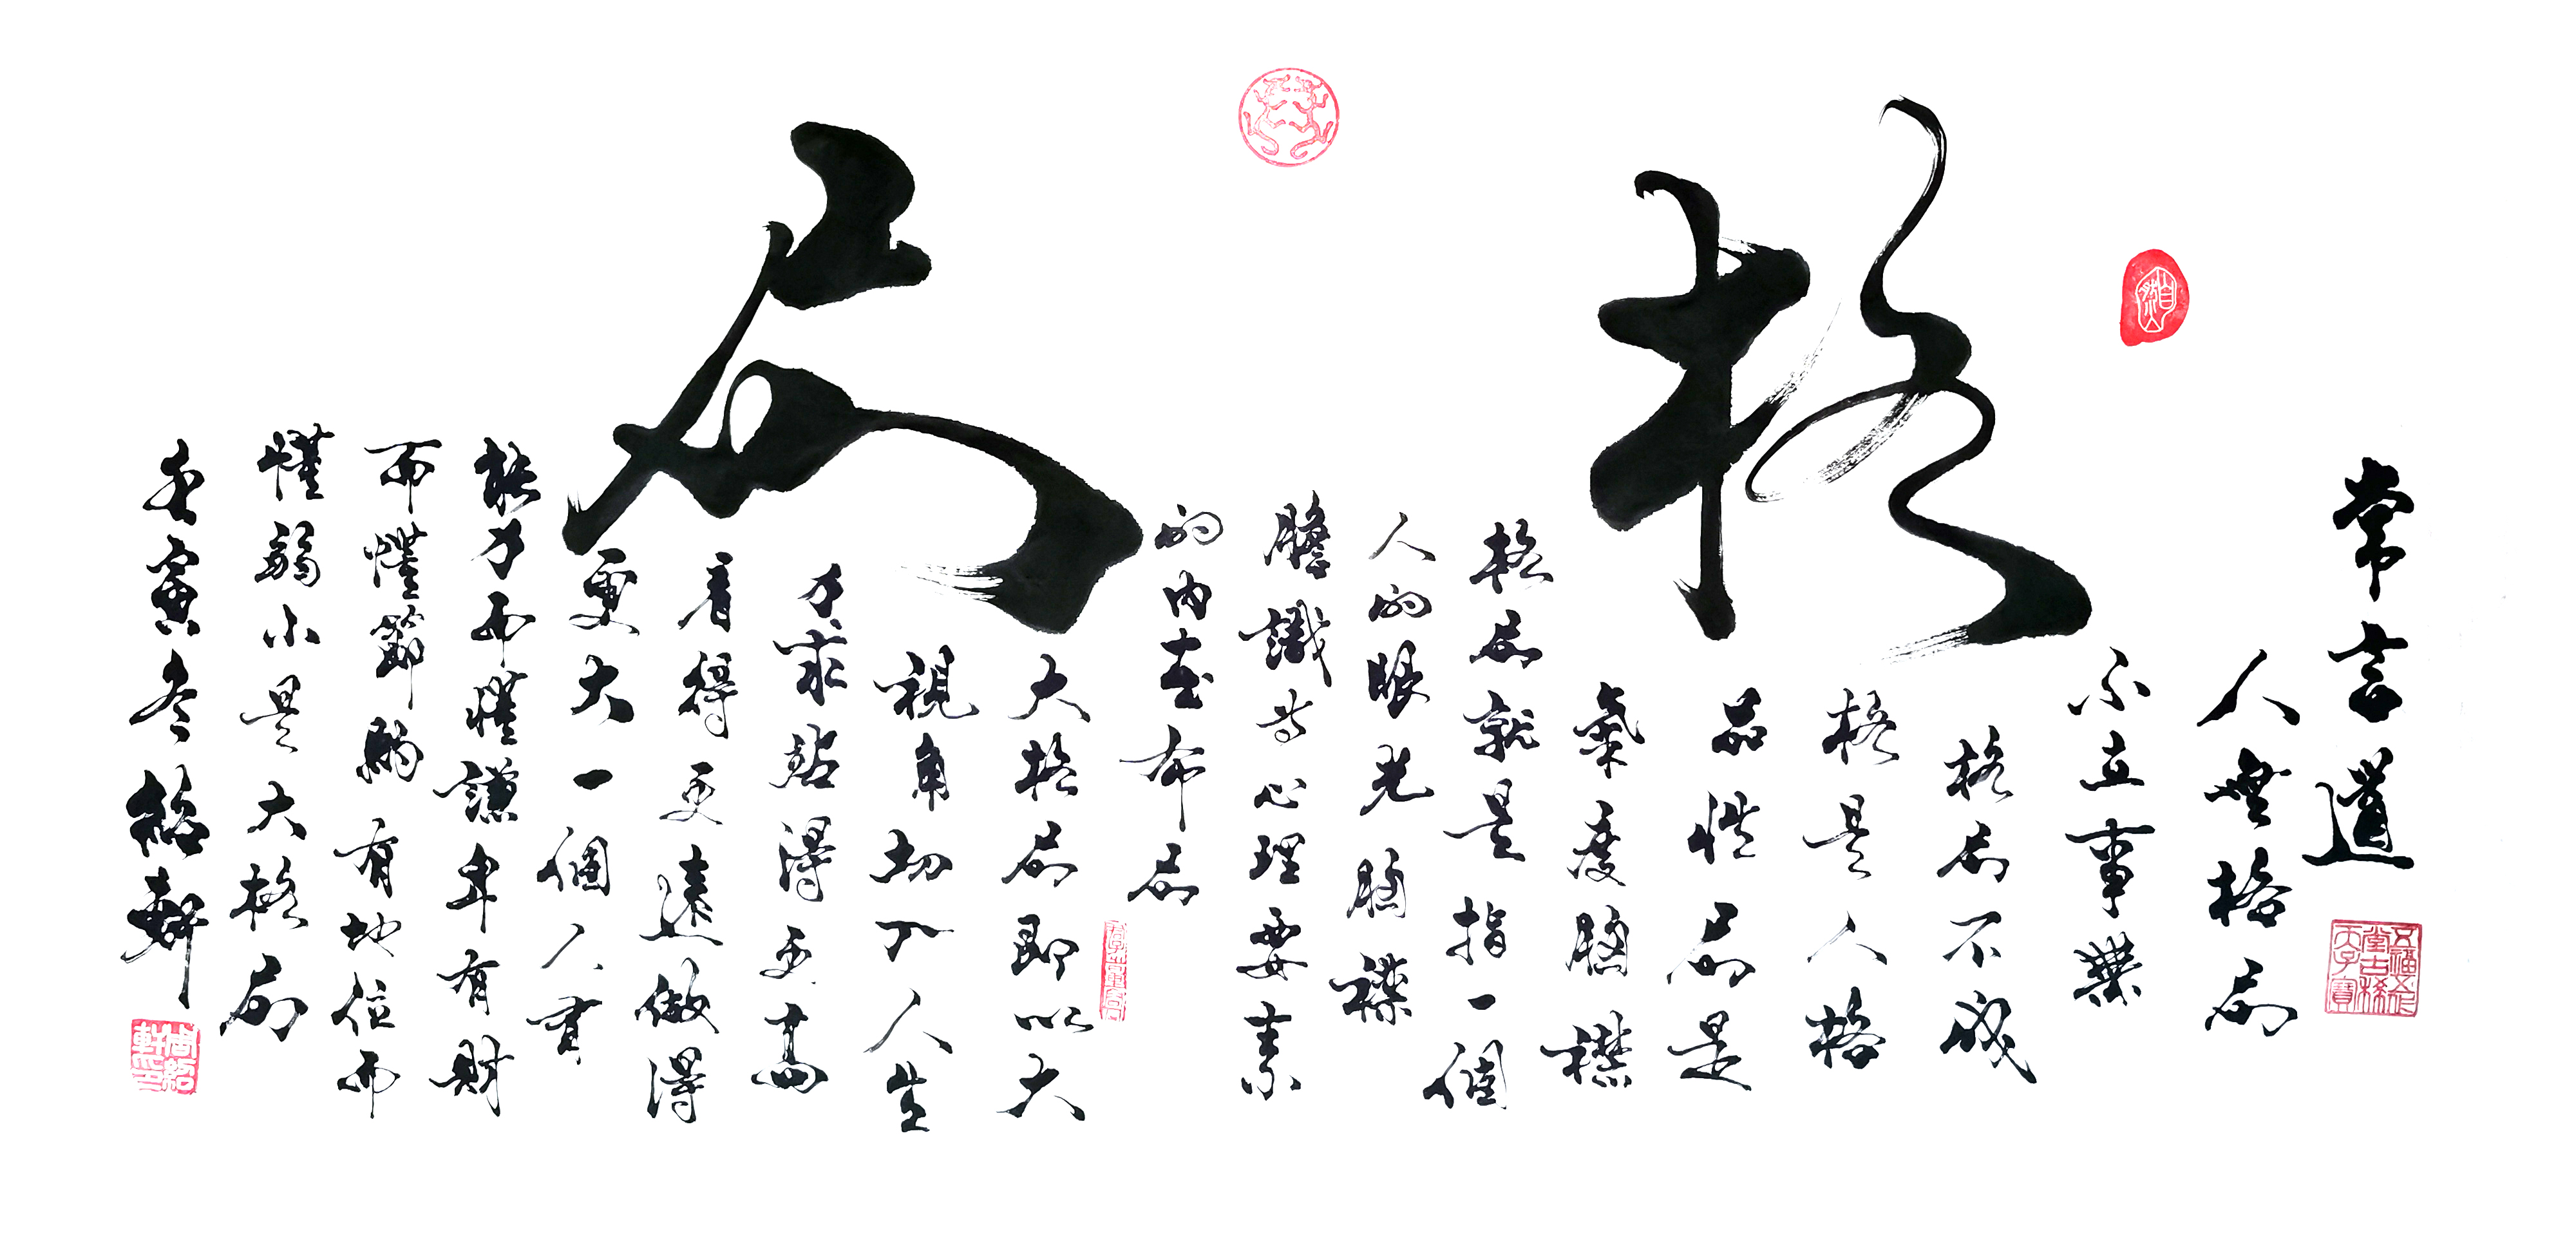 格局
常言道
人無格局
不立事業
格局不成
格是人格
品性局是
氣度胸襟
格局就是指一個
人的眼光胸襟
膽識等心理要素
的内在布局
大格局即以大
視角切入人生
力求站得更高
看得更遠做得
更大一個人有
能力而懂謙卑有財
而懂節約有地位而
懂弱小是大格局
壬寅冬紹軒
自然
五福五代堂古稀天子寶
周紹軒印